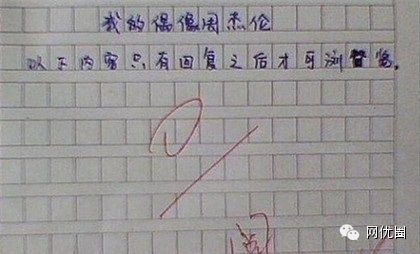 我的偶像周杰伦
以下内容只有回复之后才可浏览。
0
阅
网优圈